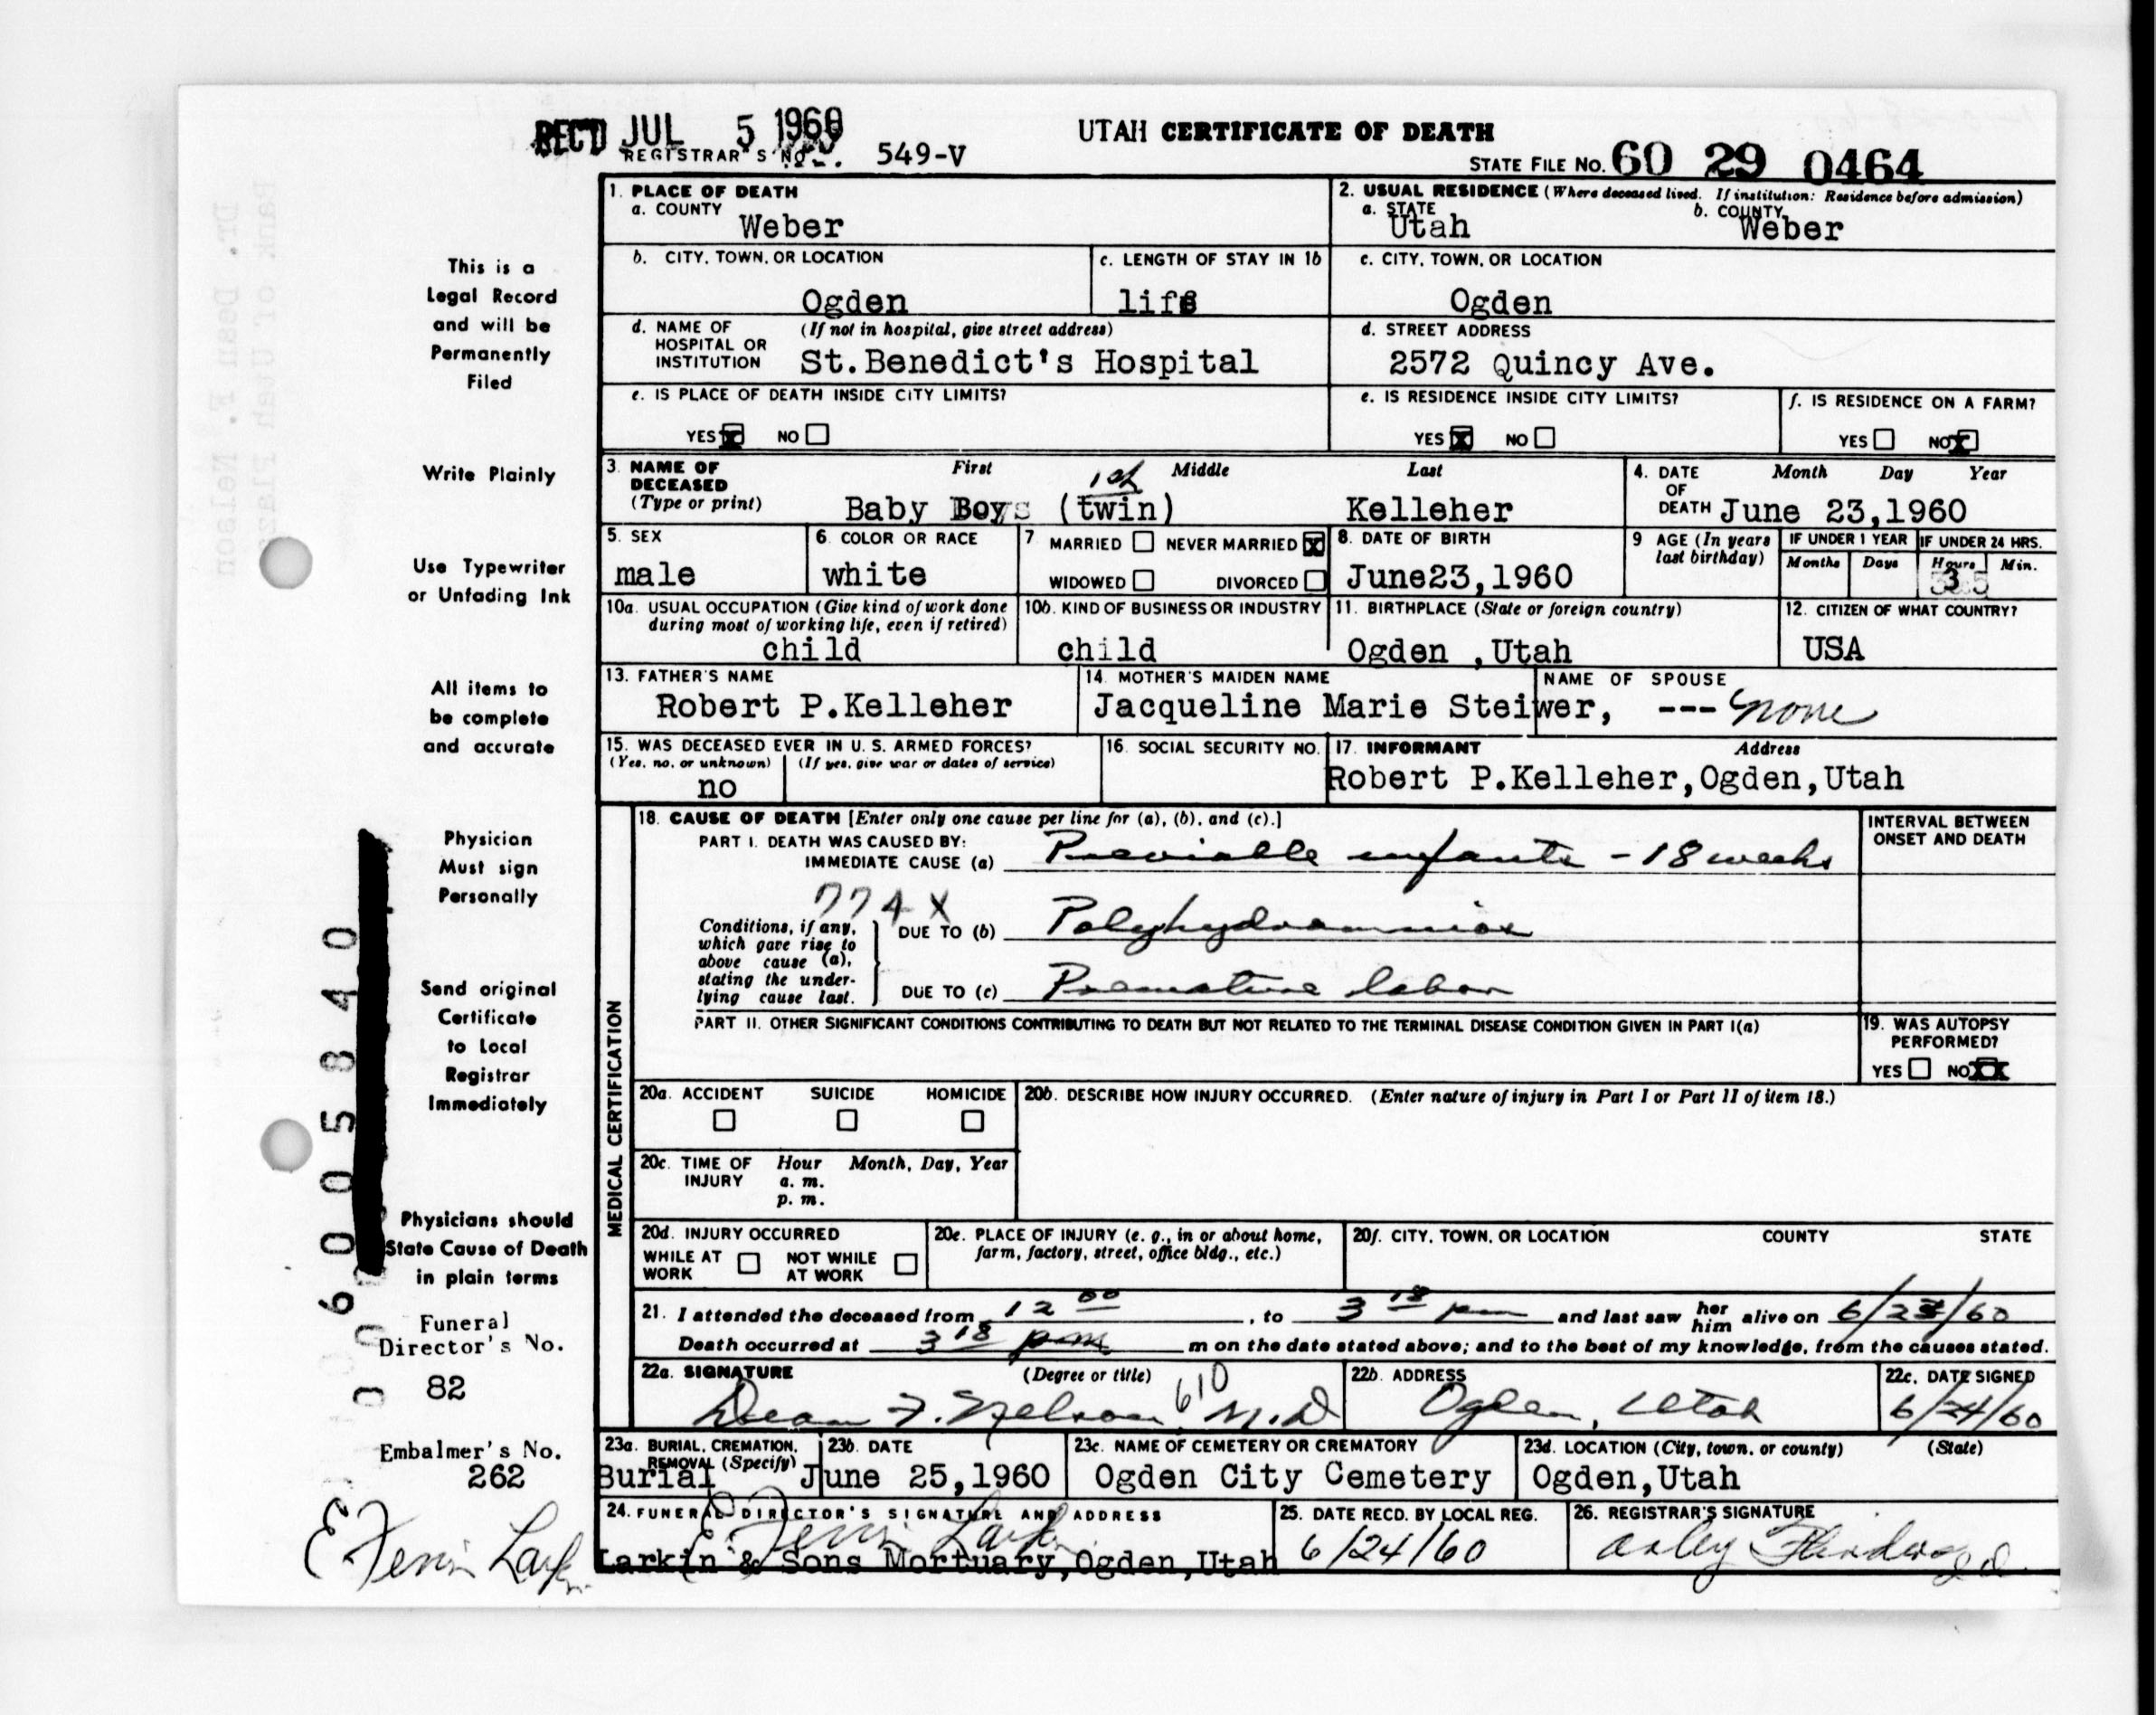 REC'D JUL 5 1960
REGISTRAR'S NO. 549-V
UTAH CERTIFICATE OF DEATH
STATE FILE NO. 60 29 0464
1. PLACE OF DEATH
a. COUNTY
Weber
2. USUAL RESIDENCE (Where deceased lived. If institution: Residence before admission)
a. STATE b. COUNTY
Utah Weber
b. CITY, TOWN, OR LOCATION
Ogden
c. LENGTH OF STAY IN 1b
life
c. CITY, TOWN, OR LOCATION
Ogden
d. NAME OF HOSPITAL OR INSTITUTION (If not in hospital, give street address)
St.Benedict's Hospital
d. STREET ADDRESS
2572 Quincy Ave.
e. IS PLACE OF DEATH INSIDE CITY LIMITS?
YES X NO
e. IS RESIDENCE INSIDE CITY LIMITS?
YES X NO
f. IS RESIDENCE ON A FARM?
YES NO X
3. NAME OF DECEASED (Type or print) First Middle Last
1st
Baby Boys (twin) Kelleher
4. DATE OF DEATH Month Day Year
June 23,1960
5. SEX
male
6. COLOR OR RACE
white
7. MARRIED NEVER MARRIED X
WIDOWED DIVORCED
8. DATE OF BIRTH
June23,1960
9. AGE (In years last birthday)
IF UNDER 1 YEAR
Months Days
IF UNDER 24 HRS.
Hours Min.
3
10a. USUAL OCCUPATION (Give kind of work done during most of working life, even if retired)
child
10b. KIND OF BUSINESS OR INDUSTRY
child
11. BIRTHPLACE (State or foreign country)
Ogden ,Utah
12. CITIZEN OF WHAT COUNTRY?
USA
13. FATHER'S NAME
Robert P.Kelleher
14. MOTHER'S MAIDEN NAME
Jacqueline Marie Steiwer,
NAME OF SPOUSE
--- none
15. WAS DECEASED EVER IN U. S. ARMED FORCES?
(Yes, no, or unknown) (If yes, give war or dates of service)
no
16. SOCIAL SECURITY NO.
17. INFORMANT Address
Robert P.Kelleher,Ogden,Utah
MEDICAL CERTIFICATION
18. CAUSE OF DEATH [Enter only one cause per line for (a), (b), and (c).]
INTERVAL BETWEEN ONSET AND DEATH
PART I. DEATH WAS CAUSED BY:
IMMEDIATE CAUSE (a) Previable infants - 18 weeks
774 X
Conditions, if any, which gave rise to above cause (a), stating the underlying cause last.
DUE TO (b) Polyhydramnios
DUE TO (c) Premature labor
PART II. OTHER SIGNIFICANT CONDITIONS CONTRIBUTING TO DEATH BUT NOT RELATED TO THE TERMINAL DISEASE CONDITION GIVEN IN PART I(a)
19. WAS AUTOPSY PERFORMED?
YES NO X
20a. ACCIDENT SUICIDE HOMICIDE
20b. DESCRIBE HOW INJURY OCCURRED. (Enter nature of injury in Part I or Part II of item 18.)
20c. TIME OF INJURY Hour Month, Day, Year
a. m.
p. m.
20d. INJURY OCCURRED
WHILE AT WORK NOT WHILE AT WORK
20e. PLACE OF INJURY (e. g., in or about home, farm, factory, street, office bldg., etc.)
20f. CITY, TOWN, OR LOCATION COUNTY STATE
21. I attended the deceased from 12 00, to 3 18 pm and last saw her him alive on 6/23/60
Death occurred at 3 18 pm m on the date stated above; and to the best of my knowledge, from the causes stated.
22a. SIGNATURE (Degree or title)
Dean F. Nelson M.D
610
22b. ADDRESS
Ogden, Utah
22c. DATE SIGNED
6/24/60
23a. BURIAL, CREMATION, REMOVAL (Specify)
Burial
23b. DATE
June 25,1960
23c. NAME OF CEMETERY OR CREMATORY
Ogden City Cemetery
23d. LOCATION (City, town, or county) (State)
Ogden,Utah
24. FUNERAL DIRECTOR'S SIGNATURE AND ADDRESS
Larkin & Sons Mortuary,Ogden,Utah
25. DATE RECD. BY LOCAL REG.
6/24/60
26. REGISTRAR'S SIGNATURE
This is a
Legal Record
and will be
Permanently
Filed
Write Plainly
Use Typewriter
or Unfading Ink
All items to
be complete
and accurate
Physician
Must sign
Personally
Send original
Certificate
to Local
Registrar
Immediately
Physicians should
State Cause of Death
in plain terms
Funeral
Director's No.
82
Embalmer's No.
262
60005840